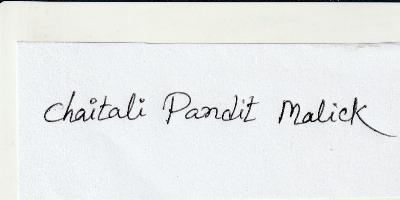 Chaitali Pandit Malick